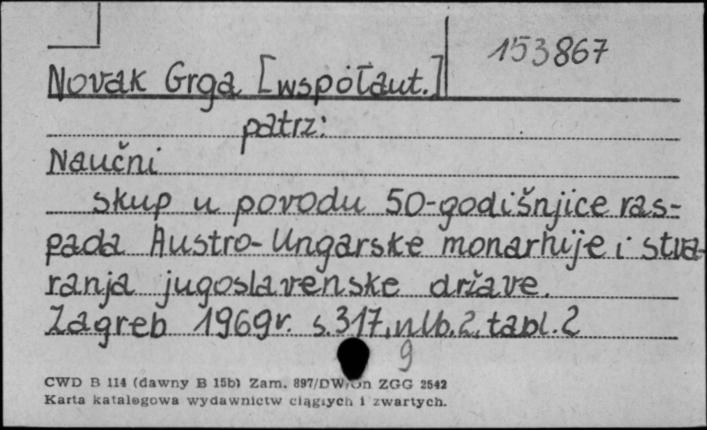 153867
Novak Grga [współaut.]
patrz:
Naučni
skup u povodu 50-godišnjice ras-
pada Austro-Ungarske monarhije i stva-
ranja jugoslavenske države.
Zagreb 1969r. s. 317, nlb. 2, tabl. 2
9
CWD B 114 (dawny B 15b) Zam. 897/DW/On ZGG 2542
Karta katalogowa wydawnictw ciągłych i zwartych.